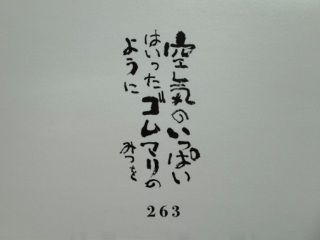 空気のいっぱい
はいったゴムマリの
ように
みつを
263